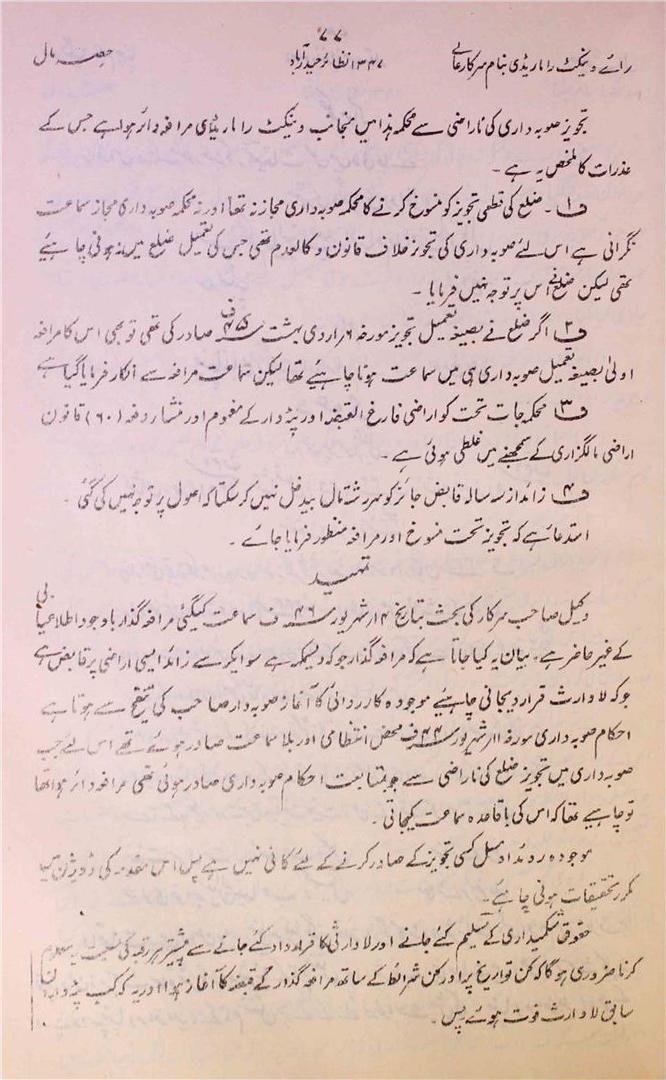 ۷۷
رائے وینکٹ راما ریڈی بنام سرکار عالی ۱۳۴۷ نظائر حیدرآباد حصہ مال
تجویز صوبہ داری کی ناراضی سے محکمہ ہذا میں منجانب وینکٹ راما ریڈی مرافعہ دائر ہوا ہے جس کے
عذرات کا ملخص یہ ہے ۔
ف۱ ۔ ضلع کی قطعی تجویز کو منسوخ کرنے کا محکمہ صوبہ داری مجاز نہ تھا اور نہ محکمہ صوبہ داری مجاز سماعت
نگرانی ہے اس لئے صوبہ داری کی تجویز خلاف قانون و کالعدم تھی جس کی تعمیل ضلع میں نہ ہونی چاہیئے
تھی لیکن ضلع نے اس پر توجہ نہیں فرمایا ۔
ف۲ اگر ضلع نے بصیغہ تعمیل تجویز مورخہ ۶ اردی بہشت ۴۵ ف صادر کی تھی تو بھی اس کا مرافعہ
اولیٰ بصیغہ تعمیل صوبہ داری ہی میں سماعت ہونا چاہیئے تھا لیکن سماعت مرافعہ سے انکار فرمایا گیا ہے
ف۳ محکمہ جات تحت کو اراضی فارغ القبضہ اور پٹہ دار کے مفہوم اور منشار دفعہ (۶۰) قانون
اراضی مالگزاری کے سمجھنے میں غلطی ہوئی ہے ۔
ف۴ زائد از سہ سالہ قابض جائز کو سررشتہ مال بیدخل نہیں کر سکتا کہ اصول پر توجہ نہیں کی گئی ۔
استدعا ہے کہ تجویز تحت منسوخ اور مرافعہ منظور فرمایا جائے ۔
تمہید
وکیل صاحب سرکار کی بحث بتاریخ ۴ ار شہریور ۴۶ ف سماعت کیگئی مرافعہ گذار باوجود اطلاعیابی
کے غیر حاضر ہے ۔ بیان یہ کیا جاتا ہے کہ مرافعہ گذار جو کہ دیسمکہ ہے سو ایکر سے زائد ایسی اراضی پر قابض ہے
جو کہ لاوارث قرار دیجانی چاہیئے موجودہ کارروائی کا آغاز صوبہ دار صاحب کی تنقیح سے ہوتا ہے
احکام صوبہ داری مورخہ ۱۱ر شہریور ۴۴ ف محض انتظامی اور بلا سماعت صادر ہوئے تھے اس لئے جب
صوبہ داری میں تجویز ضلع کی ناراضی سے جو بمتابعت احکام صوبہ داری صادر ہوئی تھی مرافعہ دائر ہوا تھا
تو چاہیے تھا کہ اس کی باقاعدہ سماعت کیجاتی ۔
موجودہ روئداد مسل کسی تجویز کے صادر کرنے کے لئے کافی نہیں ہے پس اس مقدمہ کی ڈویژن میں
مکرر تحقیقات ہونی چاہیئے ۔
حقوق شکمیداری کے تسلیم کئے جانے اور لاوارثی کا قرارداد کئے جانے سے پیشتر ہر رقبہ کی نسبت یہ معلوم
کرنا ضروری ہوگا کہ کن تواریخ پر اور کن شرائط کے ساتھ مرافعہ گذار کے قبضہ کا آغاز ہوا اور یہ کہ کب پٹہ داران
سابق لاوارث فوت ہوئے پس ۔